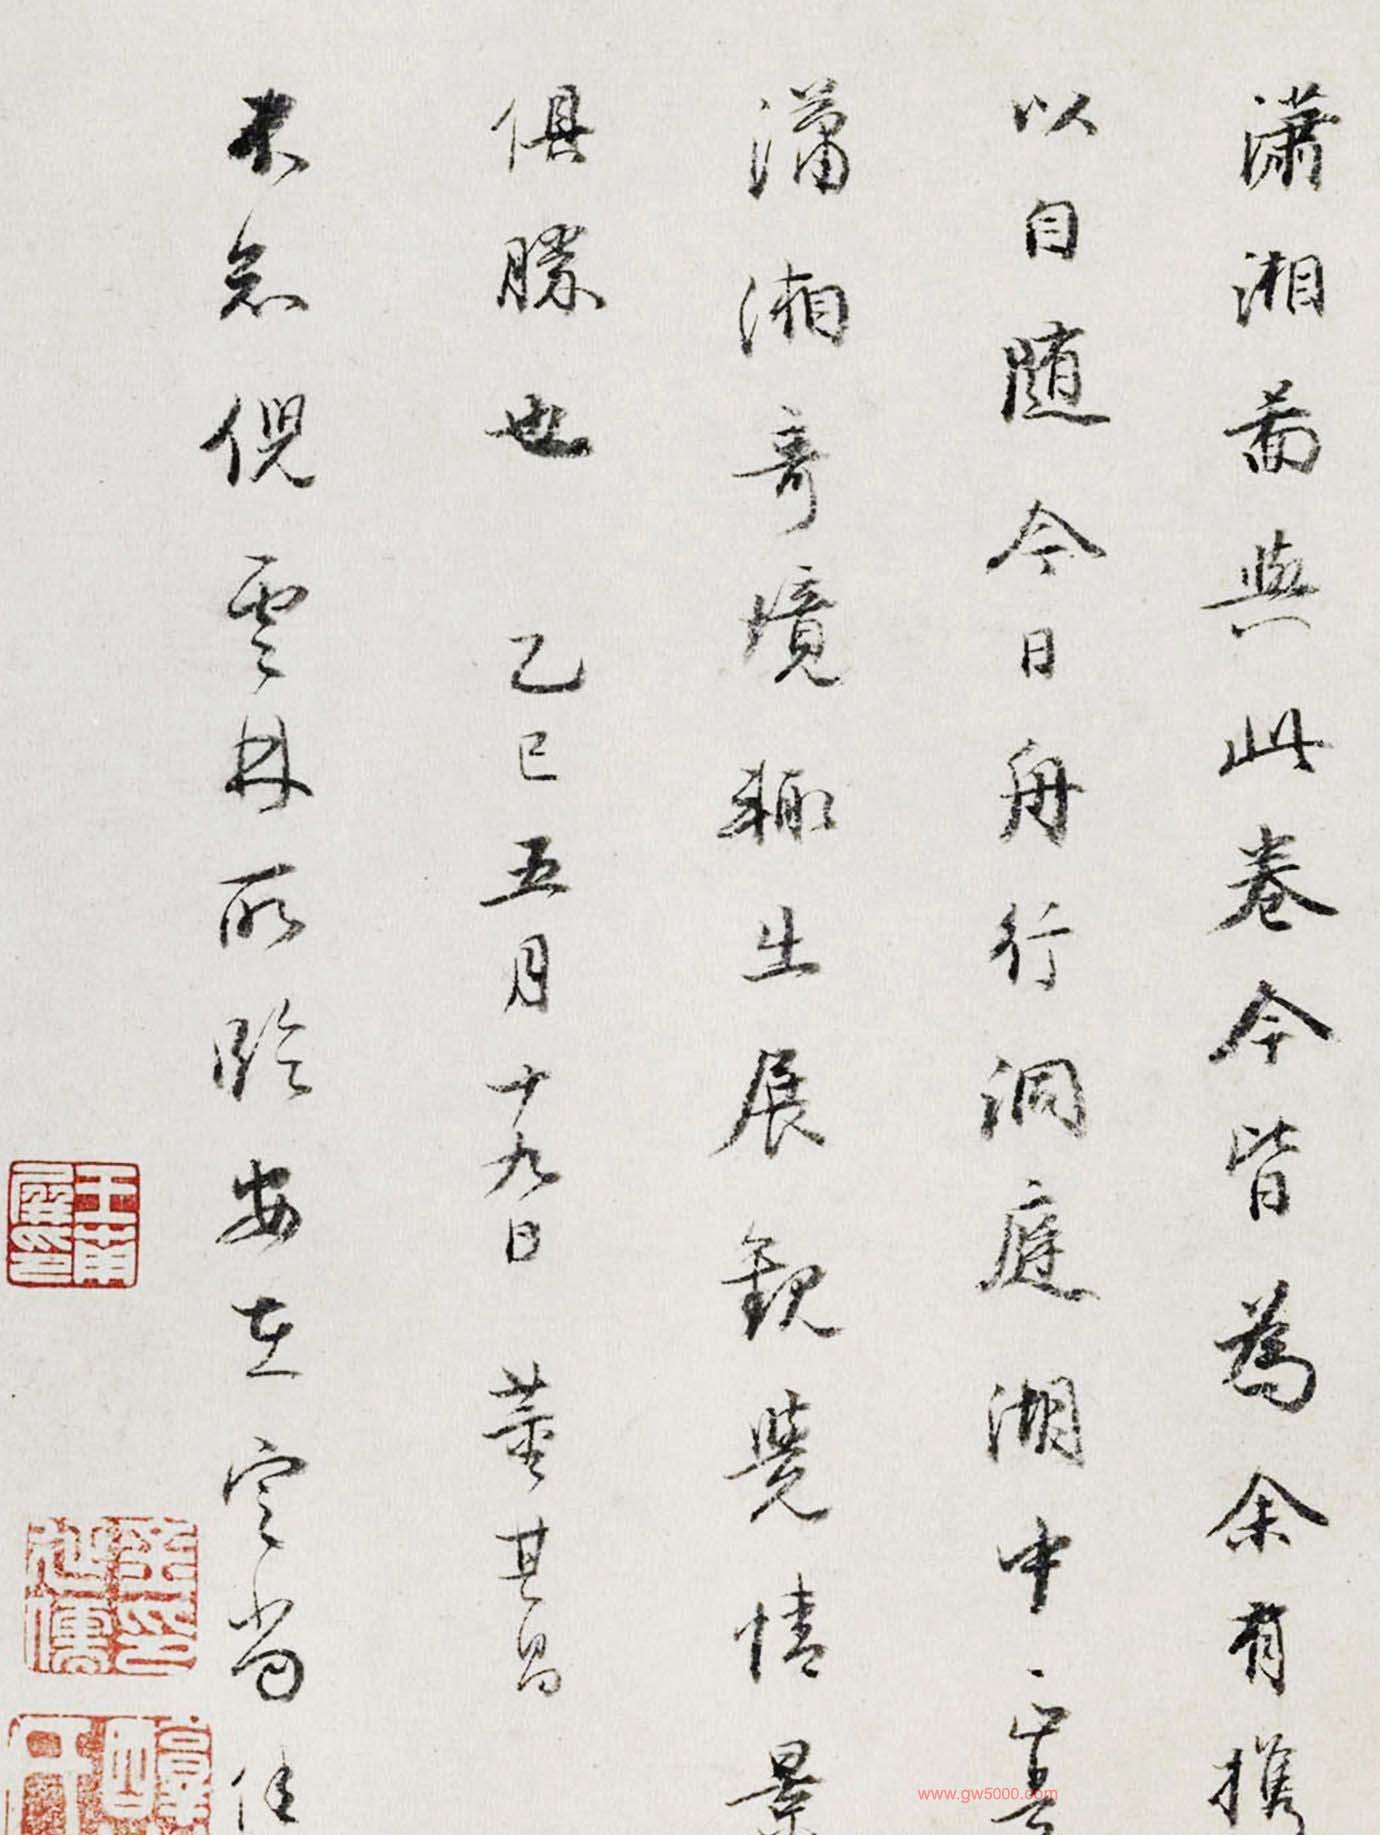 瀟湘圖與此卷今皆為余有攜
以自隨今日舟行洞庭湖中正是
瀟湘奇境輒出展觀覺情景
俱勝也 乙巳五月十九日 董其昌
倪雲林所臨安在尚佳
王南屏印
www.gw5000.com